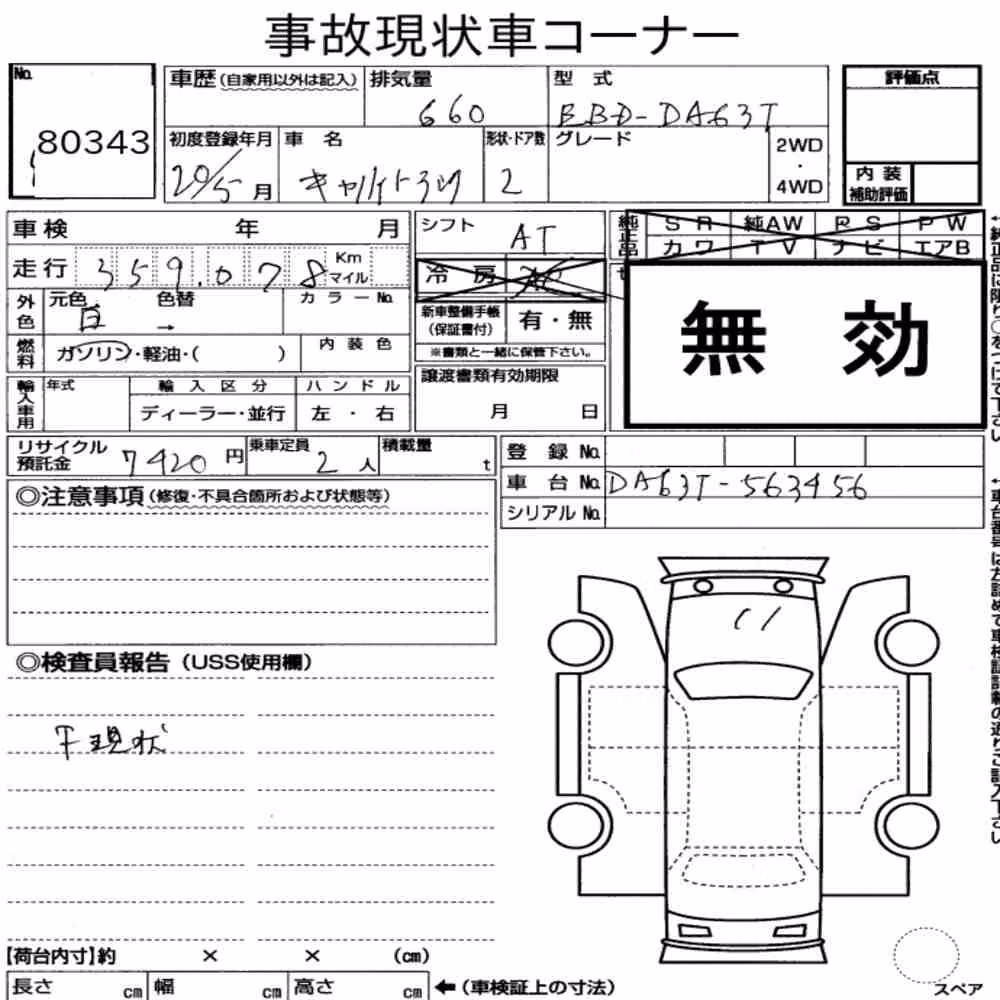 事故現状車コーナー
No. 80343
車歴(自家用以外は記入) 排気量 660 型式 EBD-DA63T
評価点
初度登録年月 20/5月 車名 形状・ドア数 2 グレード 2WD・4WD
内装補助評価
車検 年 月 シフト AT
純正品 SR 純AW RS PW
カワ TV ナビ エアB
走行 359.078 Km マイル
冷房 AC
外色 元色 白 色替 → カラーNo.
新車整備手帳(保証書付) 有・無
※書類と一緒に保管下さい。
無効
燃料 ガソリン・軽油・( ) 内装色
譲渡書類有効期限 月 日
輸入車用 年式 輸入区分 ハンドル
ディーラー・並行 左・右
リサイクル預託金 7420円 乗車定員 2人 積載量 t
登録No.
車台No. DA63T-563456
シリアルNo.
◎注意事項(修復・不具合箇所および状態等)
◎検査員報告(USS使用欄)
下現状
【荷台内寸】約 × × (cm)
長さ cm 幅 cm 高さ cm ←(車検証上の寸法)
スペア
↑純正品に限り○をつけて下さい
↑車台番号は左詰めで車検証記載の通りご記入下さい